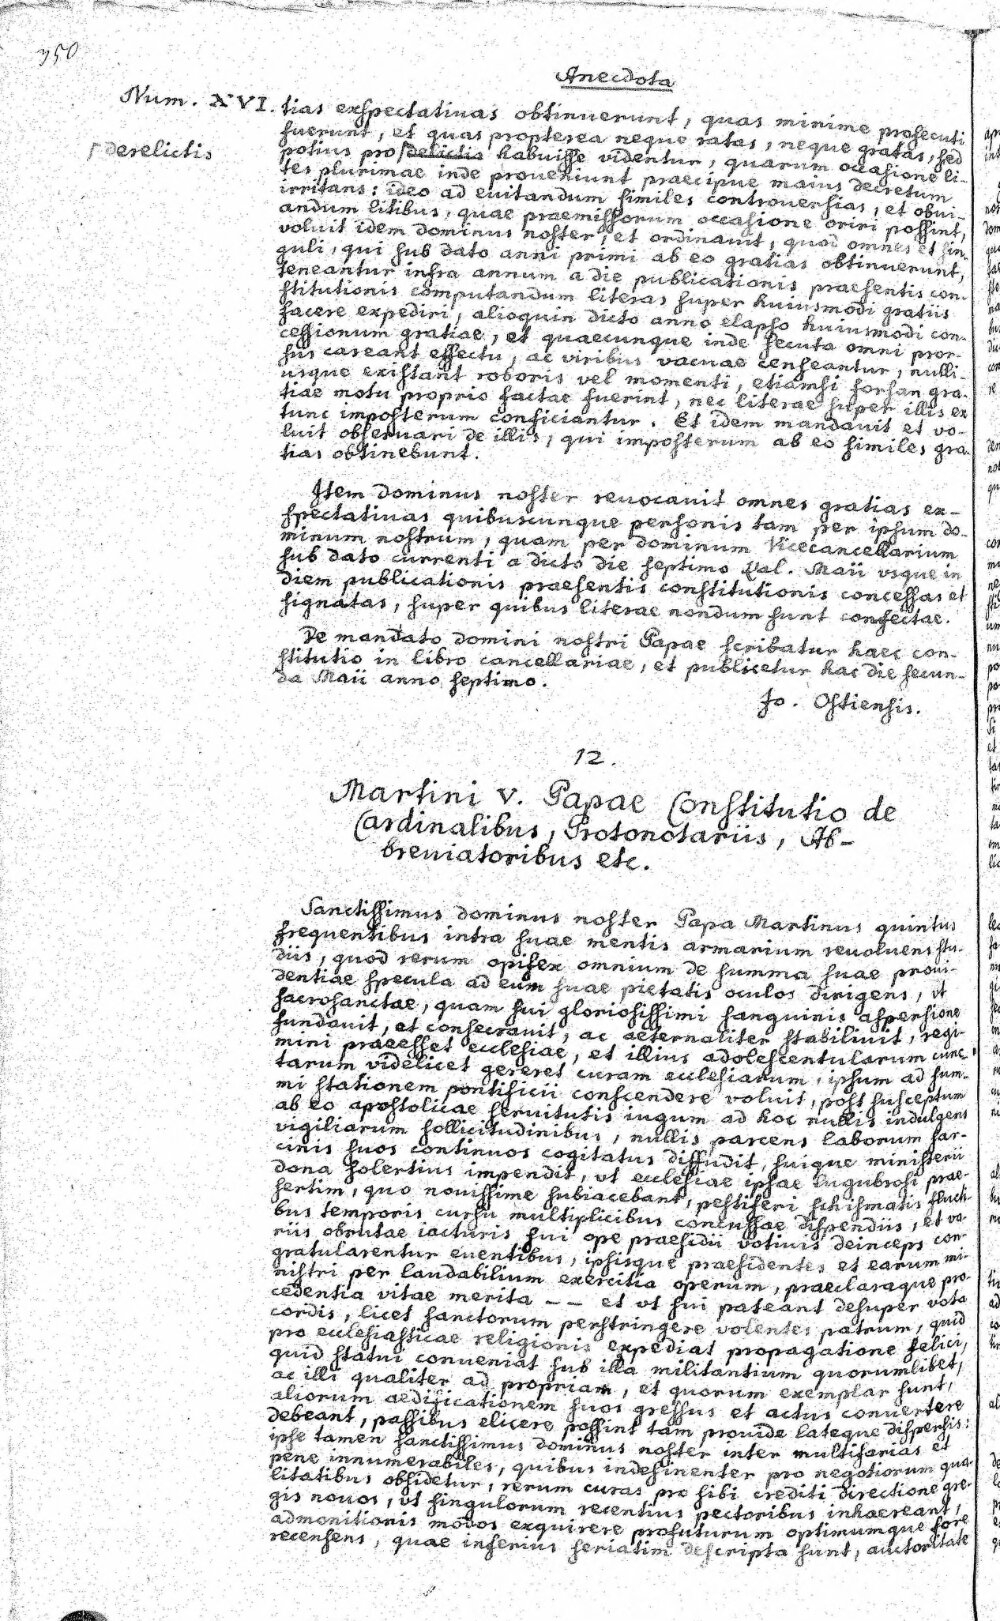 350
Anecdota
Num. XVI. tias exspectatiuas obtinuerunt, quas minime prosecuti
fuerunt, et quas propterea neque ratas, neque gratas, sed
derelictis
potius pro delictis habuisse videntur, quarum occasione li-
tes plurimae inde proueniunt praecipue maius decretum
irritans: ideo ad euitandum similes controuersias, et obui-
andum litibus, quae praemissorum occasione oriri possint,
voluit idem dominus noster, et ordinauit, quod omnes et sin-
guli, qui sub dato anni primi ab eo gratias obtinuerunt,
teneantur infra annum a die publicationis praesentis con-
stitutionis computandum literas super huiusmodi gratiis
facere expediri, alioquin dicto anno elapso huiusmodi con-
cessionum gratiae, et quaecunque inde secuta omni pror-
sus careant effectu, ac viribus vacuae censeantur, nulli-
usque existant roboris vel momenti, etiamsi forsan gra-
tiae motu proprio factae fuerint, nec literae super illis ex
tunc imposterum conficiantur. Et idem mandauit et vo-
luit obseruari de illis, qui imposterum ab eo similes gra-
tias obtinebunt.
Item dominus noster reuocauit omnes gratias ex-
spectatiuas quibuscunque personis tam per ipsum do-
minum nostrum, quam per dominum Vicecancellarium
sub dato currenti a dicto die septimo Kal. Maii vsque in
diem publicationis praesentis constitutionis concessas et
signatas, super quibus literae nondum sunt confectae.
De mandato domini nostri Papae scribatur haec con-
stitutio in libro cancellariae, et publicetur hac die secun-
da Maii anno septimo.
Jo. Ostiensis.
12.
Martini V. Papae Constitutio de
Cardinalibus, Protonotariis, Ab-
breuiatoribus etc.
Sanctissimus dominus noster Papa Martinus quintus
frequentibus intra suae mentis armarium reuoluens stu-
diis, quod rerum opifex omnium de summa suae proui-
dentiae specula ad eum suae pietatis oculos dirigens, vt
sacrosanctae, quam sui gloriosissimi sanguinis aspersione
fundauit, et consecrauit, ac aeternaliter stabiliuit, regi-
mini praeesset ecclesiae, et illius adolescentularum cunc-
tarum videlicet gereret curam ecclesiarum, ipsum ad sum-
mi stationem pontificii conscendere voluit, post susceptum
ab eo apostolicae seruitutis iugum ad hoc nullis indulgens
vigiliarum sollicitudinibus, nullis parcens laborum sar-
cinis suos continuos cogitatus diffudit, suique ministerii
dona solertius impendit, vt ecclesiae ipsae lugubrosi prae-
sertim, quo nouissime subiacebant, pestiferi schismatis flucti-
bus temporis cursu multiplicibus concussae dispendiis, et va-
riis obrutae iacturis sui ope praesidii votiuis deinceps con-
gratularentur euentibus, ipsisque praesidentes et earum mi-
nistri per laudabilium exercitia operum, praeclaraque pro-
cedentia vitae merita -- et vt sui pateant desuper vota
cordis, licet sanctorum perstringere volentes patrum, quid
pro ecclesiasticae religionis expediat propagatione felici,
quid statui conueniat sub illa militantium quorumlibet,
ac illi qualiter ad propriam, et quorum exemplar sunt,
aliorum aedificationem suos gressus et actus conuertere
debeant, passibus elicere possint tam prouide lateque dispersis:
ipse tamen sanctissimus dominus noster inter multifarias et
pene innumerabiles, quibus indesinenter pro negotiorum qua-
litatibus obsidetur, rerum curas pro sibi crediti directione gre-
gis nouos, vt singulorum recentius pectoribus inhaereant,
admonitionis modos exquirere profuturum optimumque fore
recensens, quae inferius seriatim descripta sunt, auctoritate